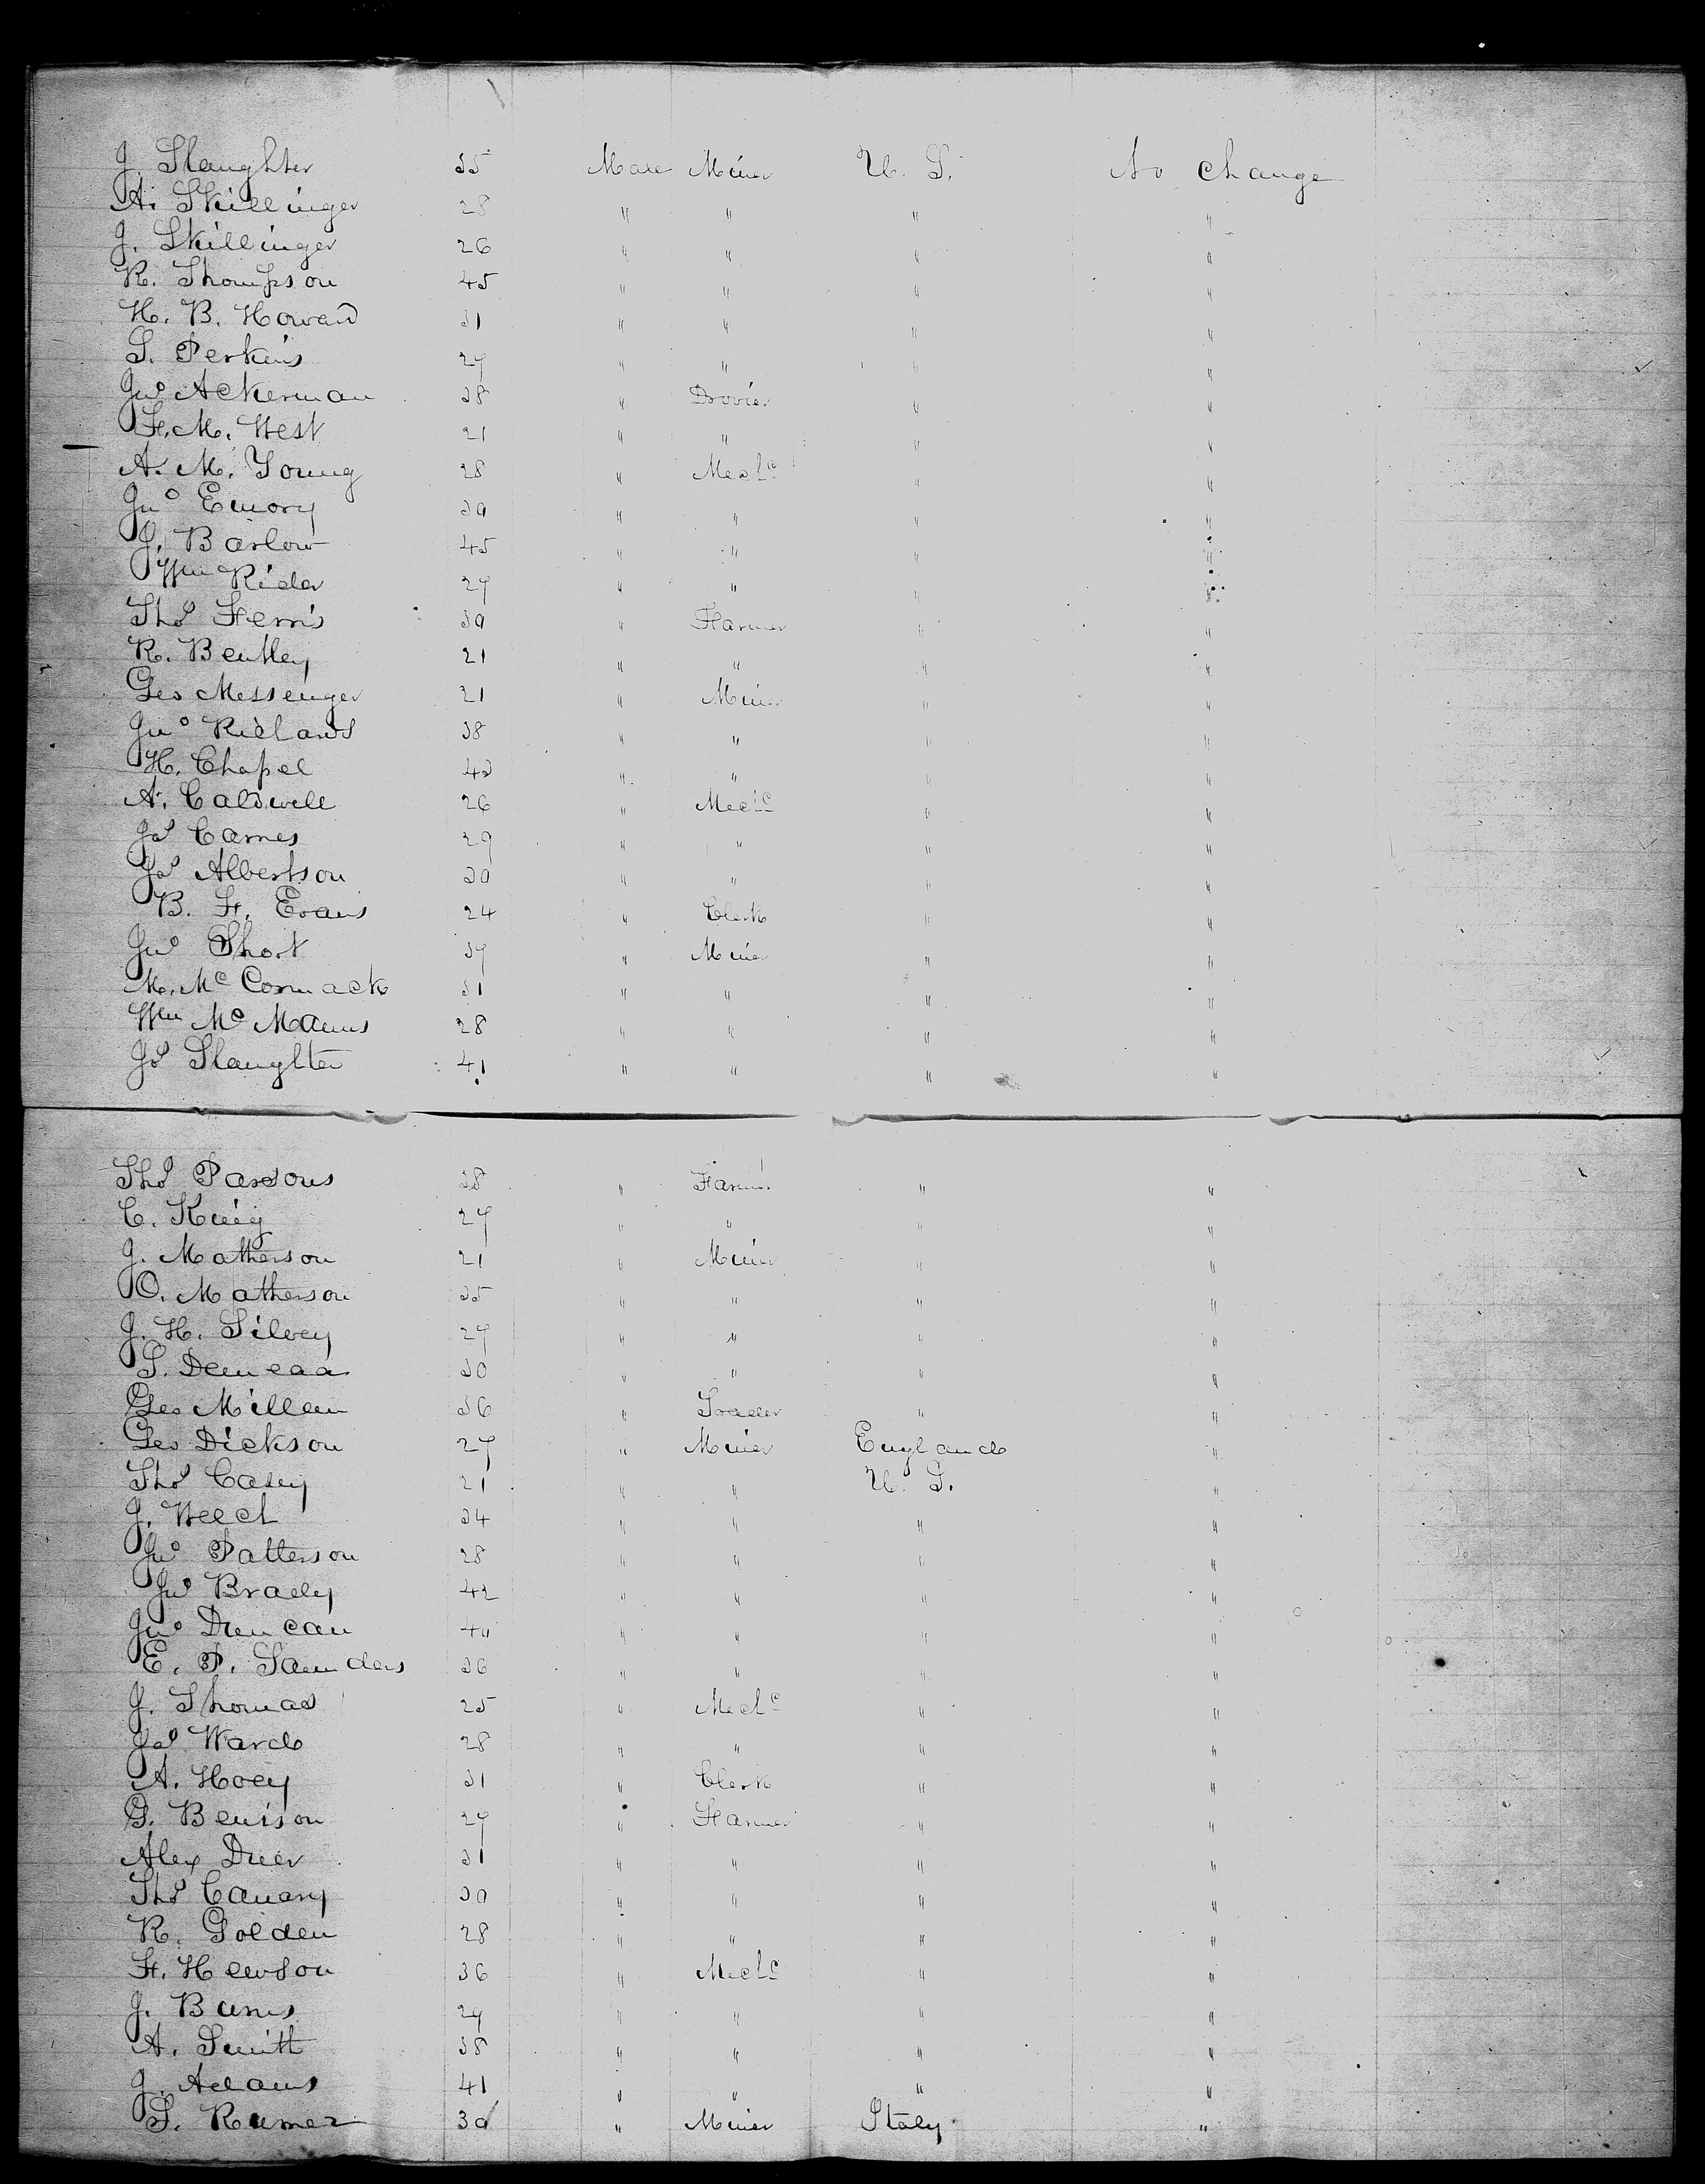 J. Slaughter 35 Male Miner U. S. No change
A. Skillinger 28 " " " "
J. Skillinger 26 " " " "
R. Thompson 45 " " " "
H. B. Howard 31 " " " "
S. Perkins 27 " " " "
Jno Ackerman 38 " Drovier " "
F. M. West 21 " " " "
A. M. Young 28 " Mechc " "
Jno Emory 30 " " " "
J. Barlow 45 " " " "
Wm Rider 27 " " " "
Thos Ferris 30 " Farmer " "
R. Bentley 21 " " " "
Geo Messenger 21 " Miner " "
Jno Richards 38 " " " "
H. Chapel 43 " " " "
A. Caldwell 26 " Mechc " "
Jas Carnes 29 " " " "
Jas Albertson 30 " " " "
B. F. Evans 24 " Clerk " "
Jno Short 37 " Miner " "
M. Mc Cormack 31 " " " "
Wm Mc Manus 28 " " " "
Js Slaughter 41 " " " "
Thos Parsons 38 " Farmer " "
C. King 27 " " " "
J. Matherson 21 " Miner " "
O. Matherson 35 " " " "
J. H. Silvey 27 " " " "
S. 30 " " " "
Geo Millen 36 " Trader " "
Geo Dickson 27 " Miner England "
Thos Casey 21 " " U. S. "
J. Welch 34 " " " "
Jno Patterson 28 " " " "
Jno Brady 42 " " " "
Jno Duncan 40 " " " "
E. P. Saunders 36 " " " "
J. Thomas 25 " Mechc " "
Jas Ward 28 " " " "
A. Hoey 31 " Clerk " "
G. Benison 27 " Farmer " "
Alex Duer 31 " " " "
Thos Canary 30 " " " "
R. Golden 28 " " " "
F. Hewson 36 " Mechc " "
J. Barns 27 " " " "
A. Smith 38 " " " "
J. Adams 41 " " " "
S. 30 " Miner Italy "